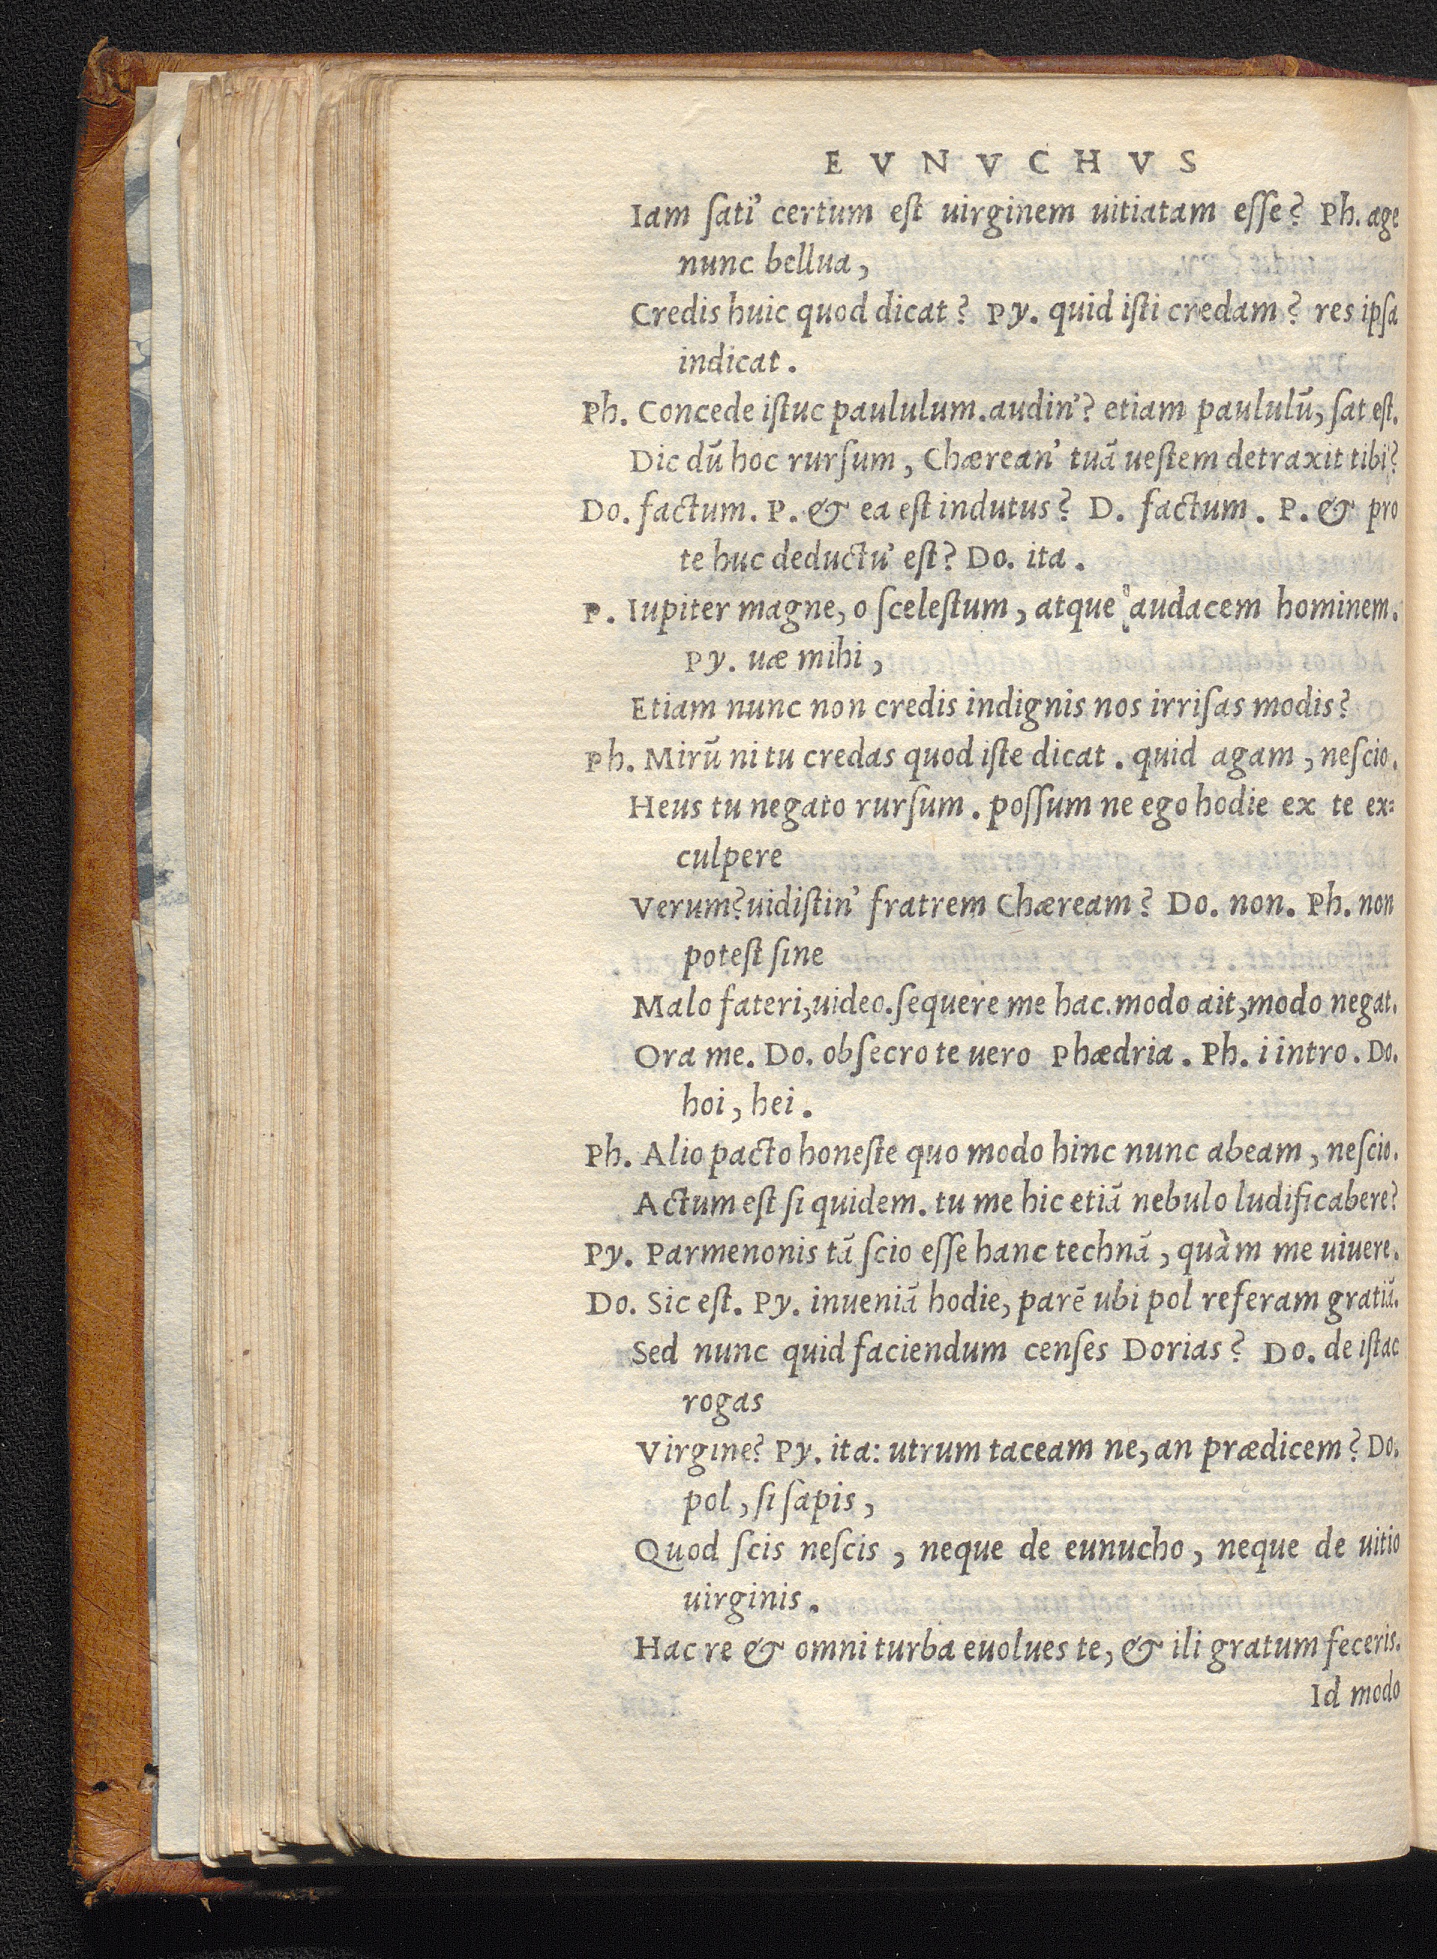 EVNVCHVS
Iam ſati' certum eſt uirginem uitiatam eſſe? Ph. age
nunc bellua,
Credis huic quod dicat? Py. quid iſti credam? res ipſa
indicat.
Ph. Concede iſtuc paululum. audin'? etiam paululū, ſat eſt.
Dic dū hoc rurſum, Chærean' tuā ueſtem detraxit tibi?
Do. factum. P. & ea eſt indutus? D. factum. P. & pro
te huc deductu' eſt? Do. ita.
P. Iupiter magne, o ſceleſtum, atque audacem hominem.
Py. uæ mihi,
Etiam nunc non credis indignis nos irriſas modis?
Ph. Mirū ni tu credas quod iſte dicat. quid agam, neſcio.
Heus tu negato rurſum. poſſum ne ego hodie ex te ex=
culpere
Verum? uidiſtin' fratrem Chæream? Do. non. Ph. non
poteſt ſine
Malo fateri, uideo. ſequere me hac. modo ait, modo negat.
Ora me. Do. obſecro te uero Phædria. Ph. i intro. Do.
hoi, hei.
Ph. Alio pacto honeſte quo modo hinc nunc abeam, neſcio.
Actum eſt ſi quidem. tu me hic etiā nebulo ludificabere?
Py. Parmenonis tā ſcio eſſe hanc technā, quàm me uiuere.
Do. Sic eſt. Py. inueniā hodie, parē ubi pol referam gratiā.
Sed nunc quid faciendum cenſes Dorias? Do. de iſtac
rogas
Virgine? Py. ita: utrum taceam ne, an prædicem? Do.
pol, ſi ſapis,
Quod ſcis neſcis, neque de eunucho, neque de uitio
uirginis.
Hac re & omni turba euolues te, & ili gratum feceris.
Id modo